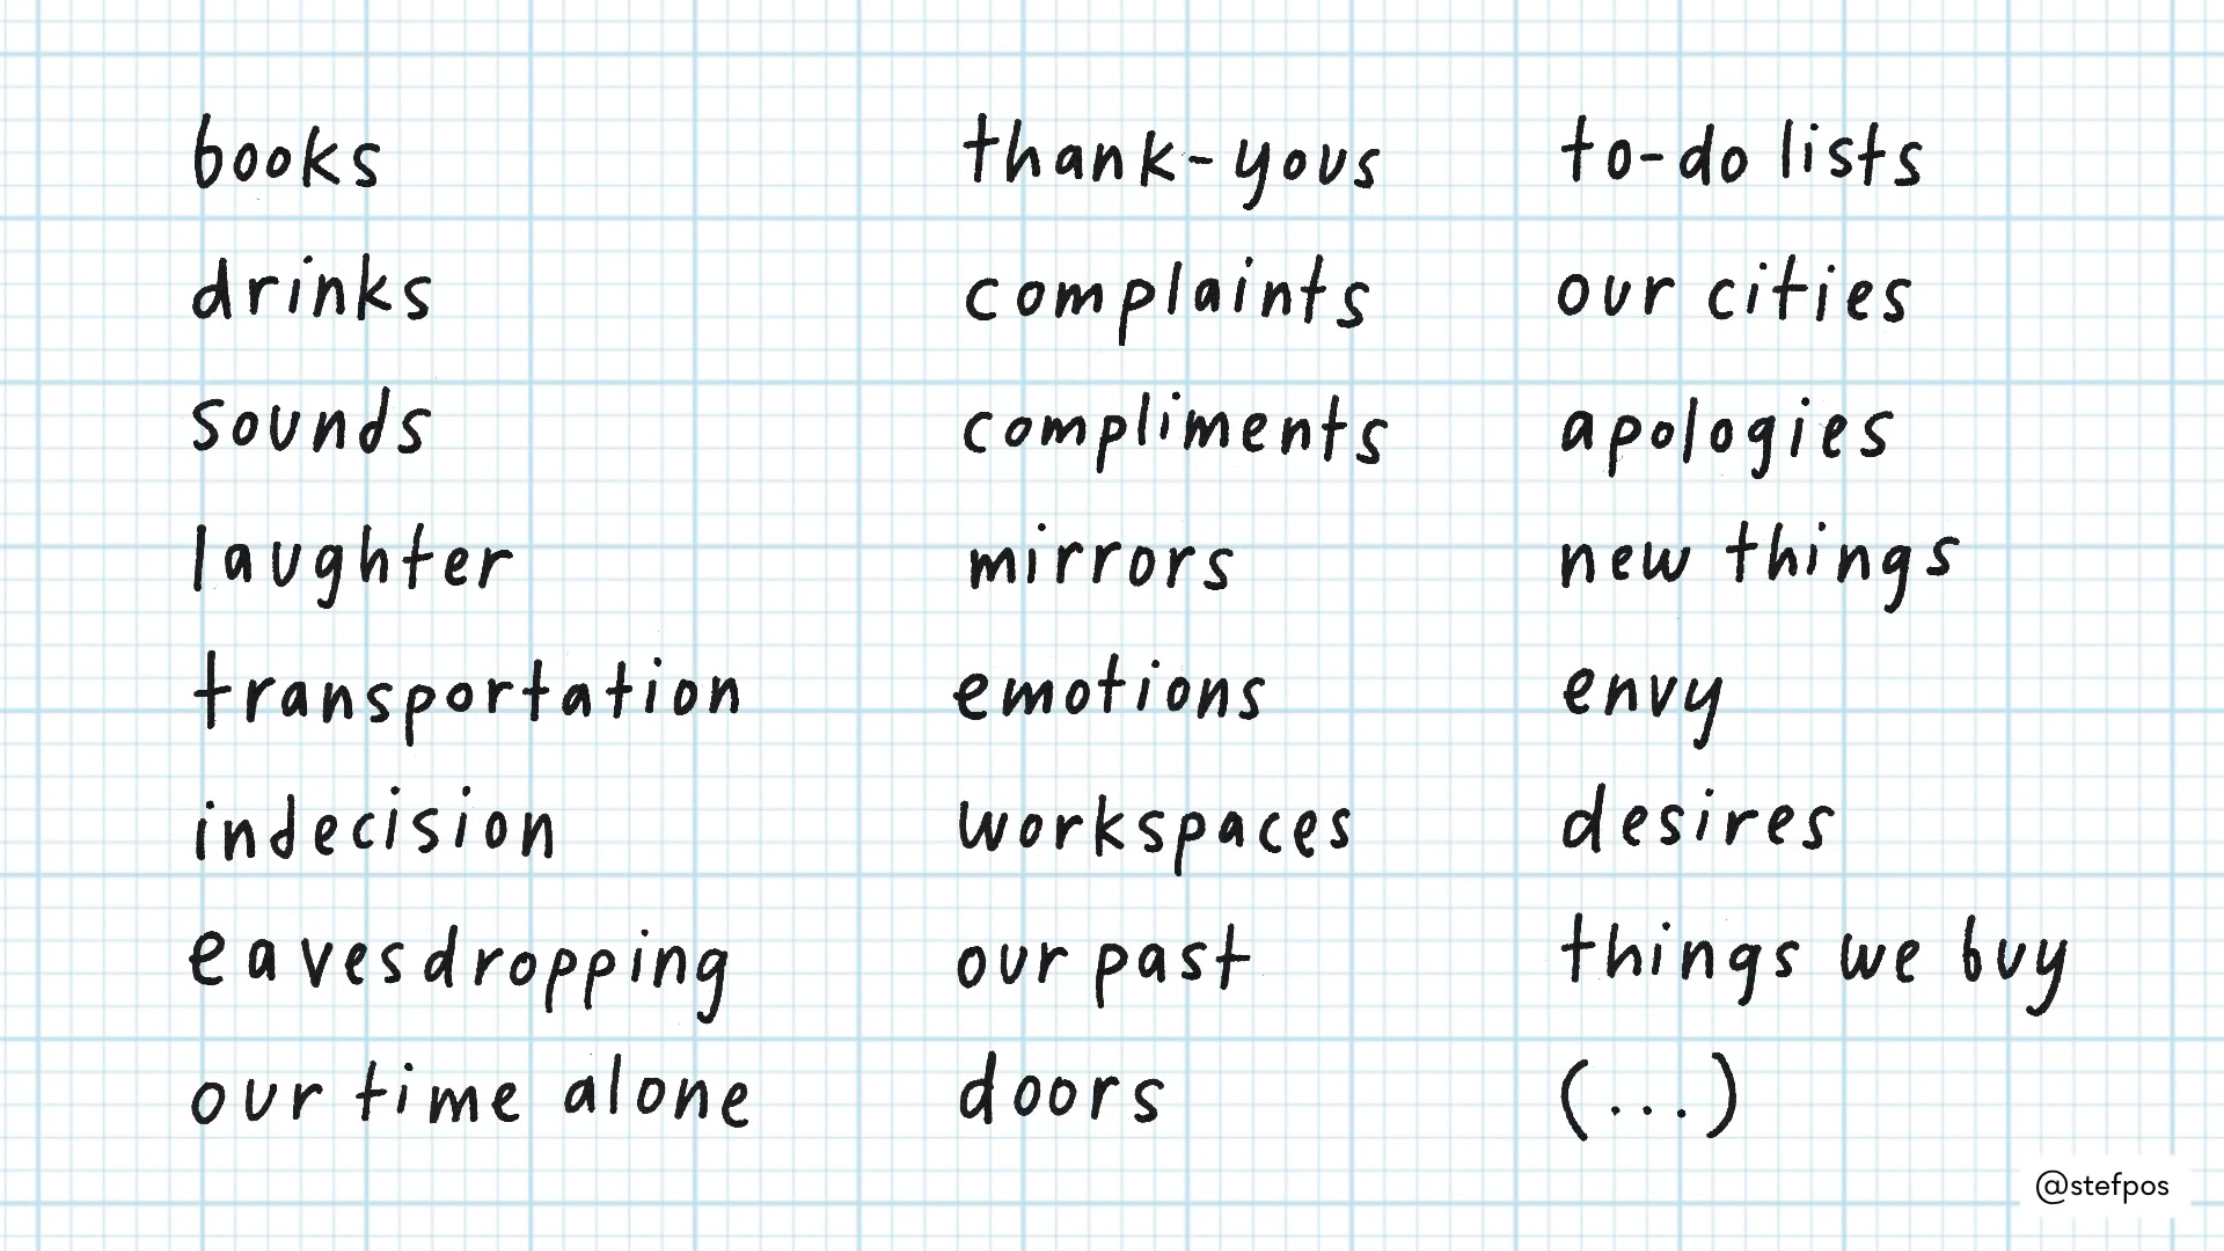 books
drinks
sounds
laughter
transportation
indecision
eavesdropping
our time alone
thank-yous
complaints
compliments
mirrors
emotions
workspaces
our past
doors
to-do lists
our cities
apologies
new things
envy
desires
things we buy
(...)
@stefpos